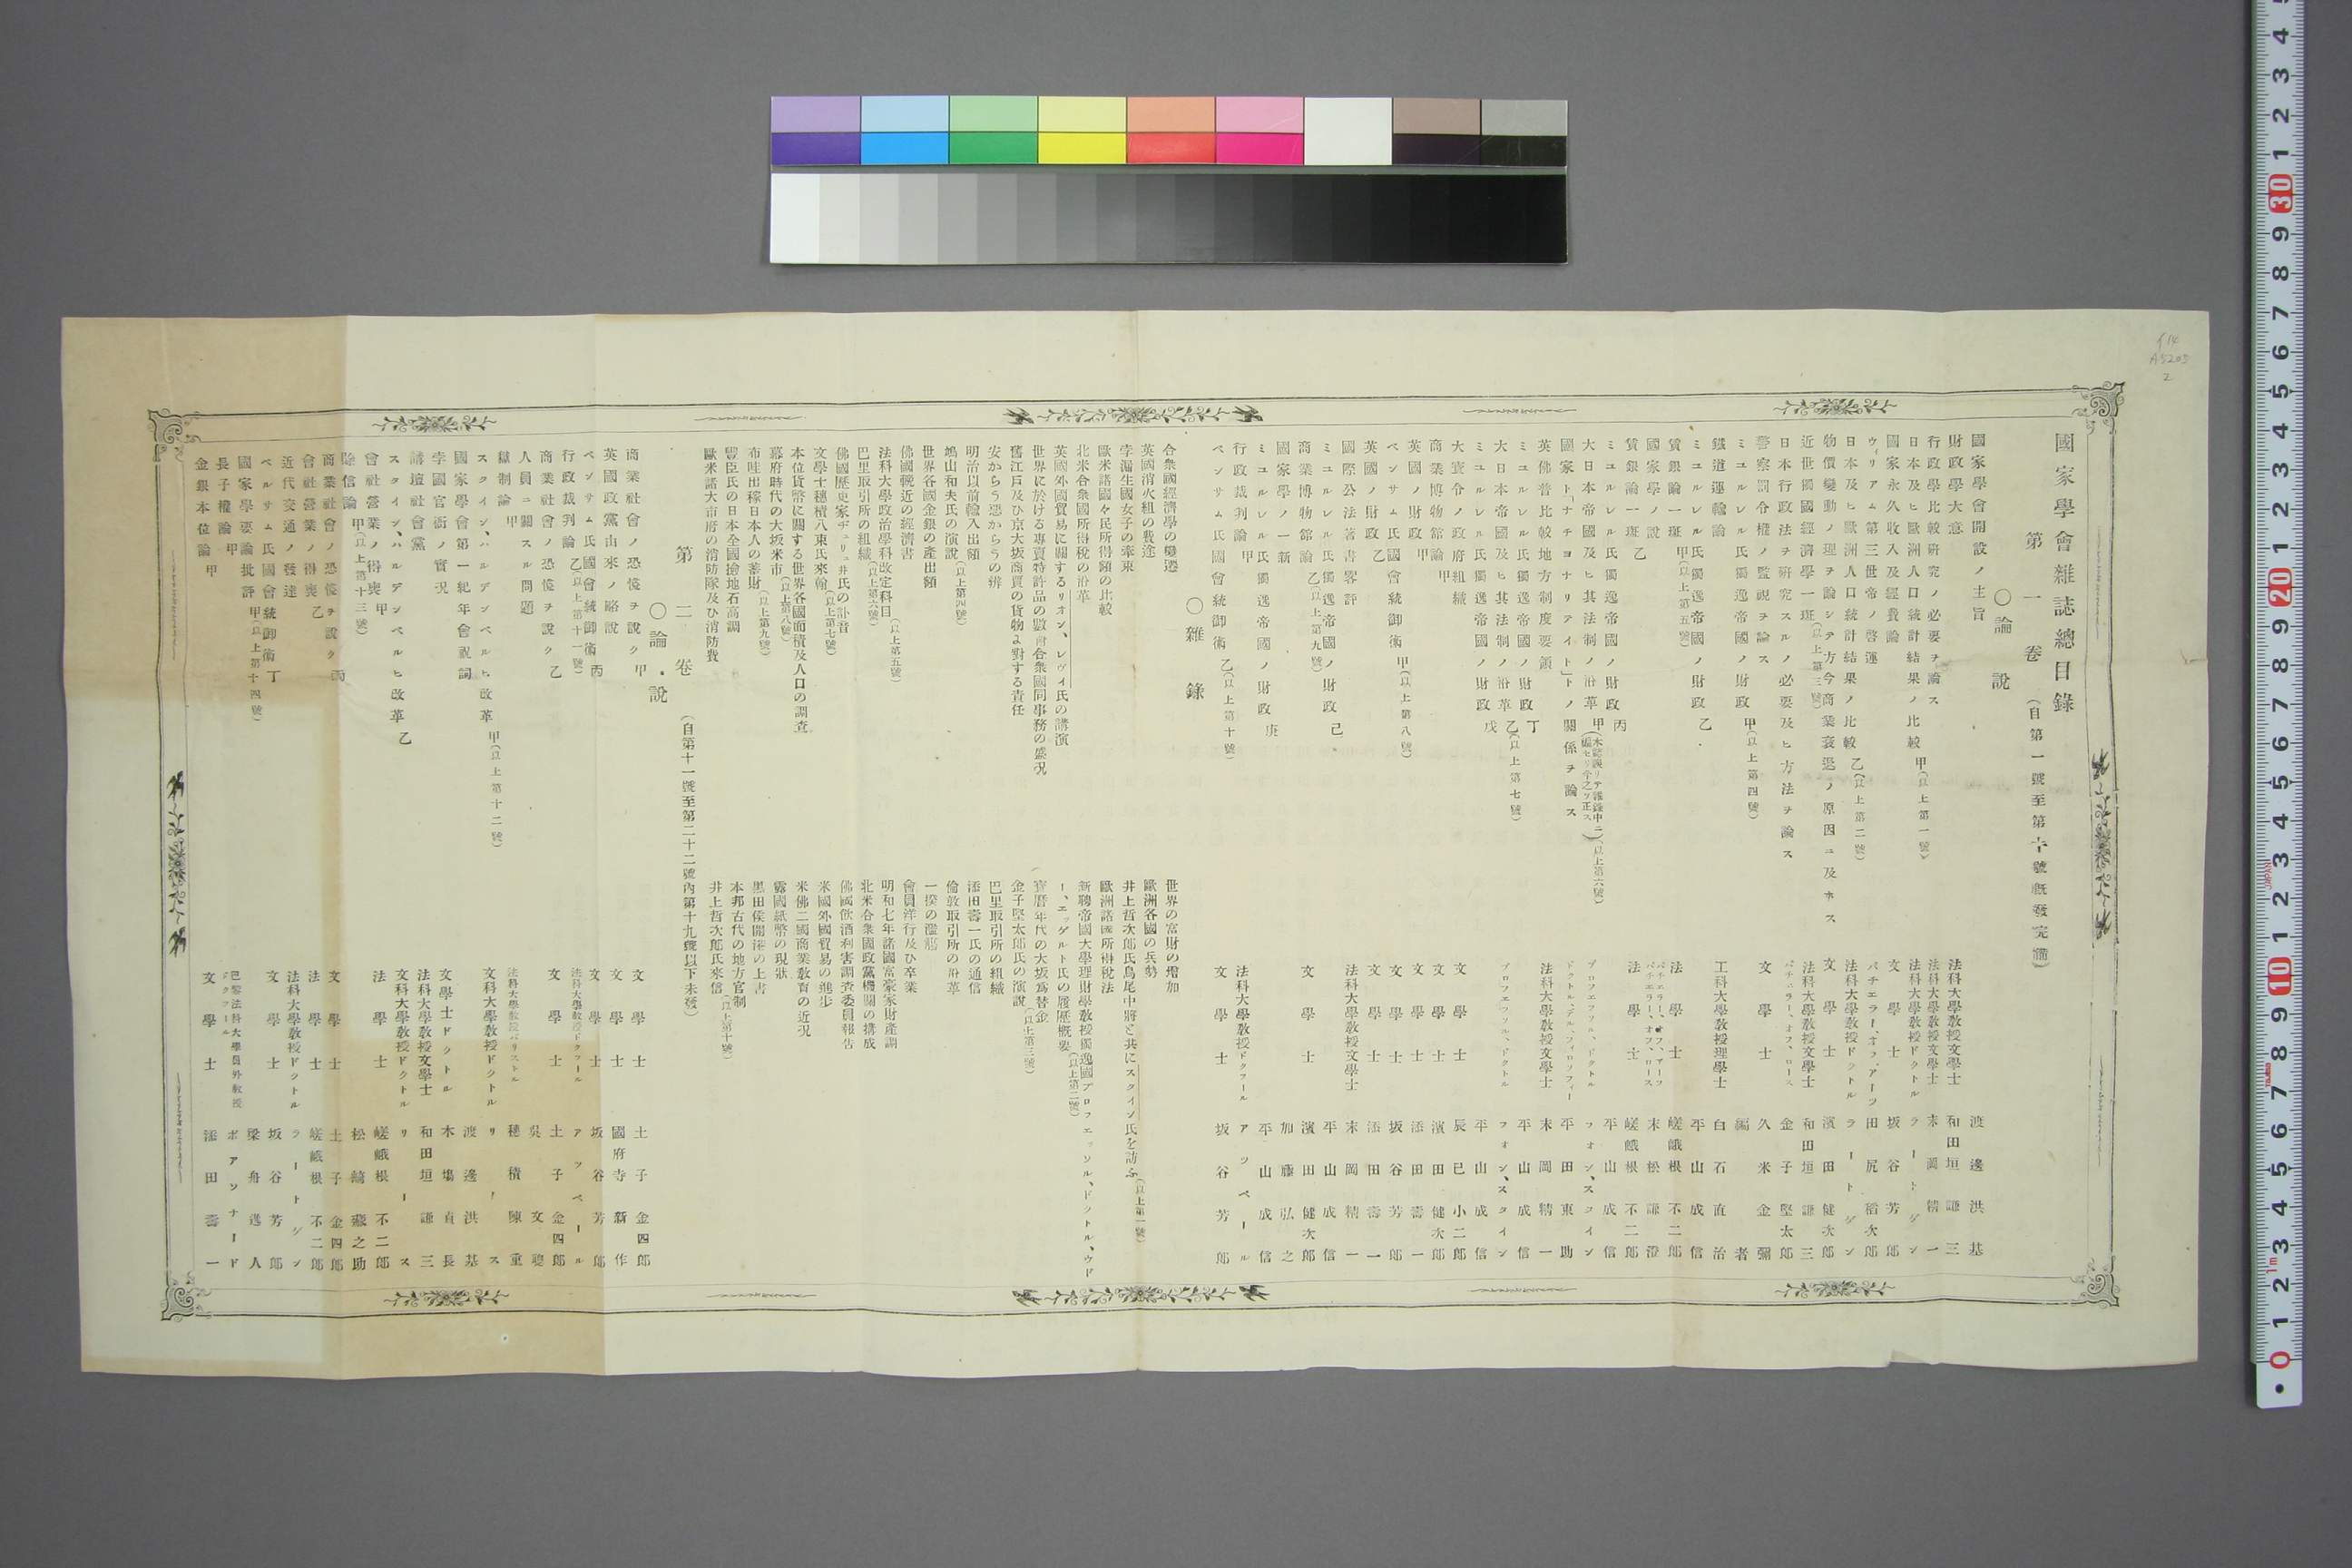 國家學會雜誌總目錄
第一卷（自第一號至第十號既發完備）
〇論說
國家學會開設ノ主旨 渡邊洪基
財政學大意 法科大學教授文學士 和田垣謙三
行政學比較研究ノ必要ヲ論ス 法科大學教授文學士 末岡精一
日本及ヒ歐洲人口統計結果ノ比較 甲（以上第一號） 法科大學教授ドクトル ラートゲン
國家永久收入及經費論 文學士 坂谷芳郎
ウィリアム第三世帝ノ啓運 バチエラー、オフ、アーツ 田尻稻次郎
日本及ヒ歐洲人口統計結果ノ比較 乙（以上第二號） 法科大學教授ドクトル ラートゲン
物價變動ノ理ヲ論シテ方今商業衰退ノ原因ニ及ホス 文學士 濱田健次郎
近世獨國經濟學一斑（以上第三號） 法科大學教授文學士 和田垣謙三
日本行政法ヲ研究スルノ必要及ヒ方法ヲ論ス バチエラー、オフ、ロース 金子堅太郎
警察罰令權ノ監視ヲ論ス 文學士 久米金彌
ミユルレル氏獨逸帝國ノ財政 甲（以上第四號） 編者
鐵道運輸論 工科大學教授理學士 白石直治
ミユルレル氏獨逸帝國ノ財政 乙 平山成信
賃銀論一斑 甲（以上第五號） 法學士 嵯峨根不二郎
國家學ノ說 末松謙澄
賃銀論一斑 乙 法學士 嵯峨根不二郎
ミユルレル氏獨逸帝國ノ財政 丙 平山成信
大日本帝國及ヒ其法制ノ沿革 甲（以上第六號） プロフエツソル、ドクトル フオン、スタイン
國家ト「ナチヨナリアイト」トノ關係ヲ論ス ドクトル、デル、フィロソフィー 平田東助
英佛普比較地方制度要領 法科大學教授文學士 末岡精一
ミユルレル氏獨逸帝國ノ財政 丁 平山成信
大日本帝國及ヒ其法制ノ沿革 乙（以上第七號） プロフエツソル、ドクトル フオン、スタイン
ミユルレル氏獨逸帝國ノ財政 戊 平山成信
大寶令ノ政府組織 文學士 辰巳小二郎
商業博物館論 甲 文學士 濱田健次郎
英國ノ財政 甲 文學士 添田壽一
ベンサム氏國會統御術 甲（以上第八號） 文學士 坂谷芳郎
英國ノ財政 乙 文學士 添田壽一
國際公法著書畧評 法科大學教授文學士 末岡精一
ミユルレル氏獨逸帝國ノ財政 己 平山成信
商業博物館論 乙（以上第九號） 文學士 濱田健次郎
國家學ノ一新 加藤弘之
ミユルレル氏獨逸帝國ノ財政 庚 平山成信
行政裁判論 甲 法科大學教授ドクツール アツペール
ベンサム氏國會統御術 乙（以上第十號） 文學士 坂谷芳郎
〇雜錄
合衆國經濟學の變遷
英國消火組の費途
孛漏生國女子の牽束
歐米諸國々民所得額の比較
北米合衆國所得稅の沿革
英國外國貿易に關するリオン、レヴィ氏の講演
世界に於ける專賣特許品の數合衆國同事務の盛况
舊江戸及ひ京大坂商賈の貨物に對する責任
安からう惡からうの辨
明治以前輸入出額
鳩山和夫氏の演說（以上第四號）
世界各國金銀の產出額
佛國輓近の經濟書
法科大學政治學科改定科目（以上第五號）
巴里取引所の組織（以上第六號）
佛國歷史家ヂュリュ井氏の訃音
文學士穗積八束氏來翰（以上第七號）
本位貨幣に關する世界各國面積及人口の調査
幕府時代の大坂米市（以上第八號）
布哇出稼日本人の蓄財
豐臣氏の日本全國撿地石高調（以上第九號）
歐米諸大市府の消防隊及ひ消防費
世界の富財の增加
歐洲各國の兵勢
井上哲次郎氏鳥尾中將と共にスタイン氏を訪ふ（以上第一號）
歐洲諸國所得稅法
新聘帝國大學理財學教授獨逸國プロフェッソル、ドットル、ウド
ー、エッゲルト氏の履歷概要（以上第二號）
寶曆年代の大坂爲替金
金子堅太郎氏の演說（以上第三號）
巴里取引所の組織
添田壽一氏の通信
倫敦取引所の沿革
一揆の濫觴
會員洋行及ひ卒業
明和七年諸國富豪家財產調
北米合衆國政黨機關の構成
佛國飮酒利害調査委員報告
米國外國貿易の進步
米佛二國商業教育の近況
露國紙幣の現狀
黑田侯開港の上書
本邦古代の地方官制（以上第十號）
井上哲次郎氏來信
第二卷（自第十一號至第二十二號內第十九號以下未發）
〇論說
商業社會ノ恐慌ヲ說ク 甲 文學士 土子金四郎
英國政黨由來ノ略說 文學士 國府寺新作
ベンサム氏國會統御術 丙 文學士 坂谷芳郎
行政裁判論 乙（以上第十一號） 法科大學教授ドクツール アツペール
商業社會ノ恐慌ヲ說ク 乙 文學士 土子金四郎
人員ニ關スル問題 吳文聰
獄制論 甲 穗積陳重
スタイン、ハルデンベルヒ改革 甲（以上第十二號） 文科大學教授ドクトル リース
國家學會第一紀年會祝詞 渡邊洪基
孛國官衙ノ實況 文學士ドクトル 木塲貞長
講壇社會黨 法科大學教授文學士 和田垣謙三
スタイン、ハルデンベルヒ改革 乙 文科大學教授ドクトル リース
會社營業ノ得喪 甲 法學士 嵯峨根不二郎
除信論 甲（以上第十三號） 松崎藏之助
商業社會ノ恐慌ヲ說ク 丙 文學士 土子金四郎
會社營業ノ得喪 乙 法學士 嵯峨根不二郎
近代交通ノ發達 法科大學教授ドクトル ラートゲン
ベルサム氏國會統御術 丁 文學士 坂谷芳郎
國家學要論批評 甲（以上第十四號） 梁舟逸人
長子權論 甲 巴黎法科大學員外教授ドクツール ボアソナード
金銀本位論 甲 文學士 添田壽一